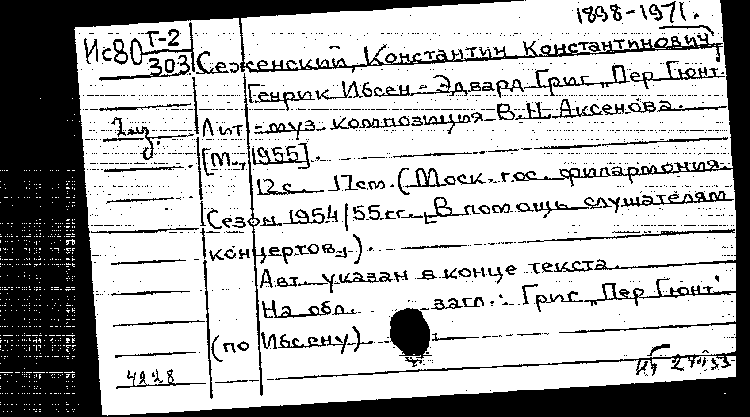 1898-1971.
Ис80 Г-2/303 Сеженский, Константин Константинович
Генрик Ибсен - Эдвард Григ „Пер Гюнт".
2 экз. Лит.-муз. композиция В.Н. Аксенова.
[М., 1955].
12 с. 17 cm. (Моск. гос. филармония.
Сезон 1954/55 гг. „В помощь слушателям
концертов").
Авт. указан в конце текста.
На обл. загл.: Григ „Пер Гюнт"
(по Ибсену).
4228